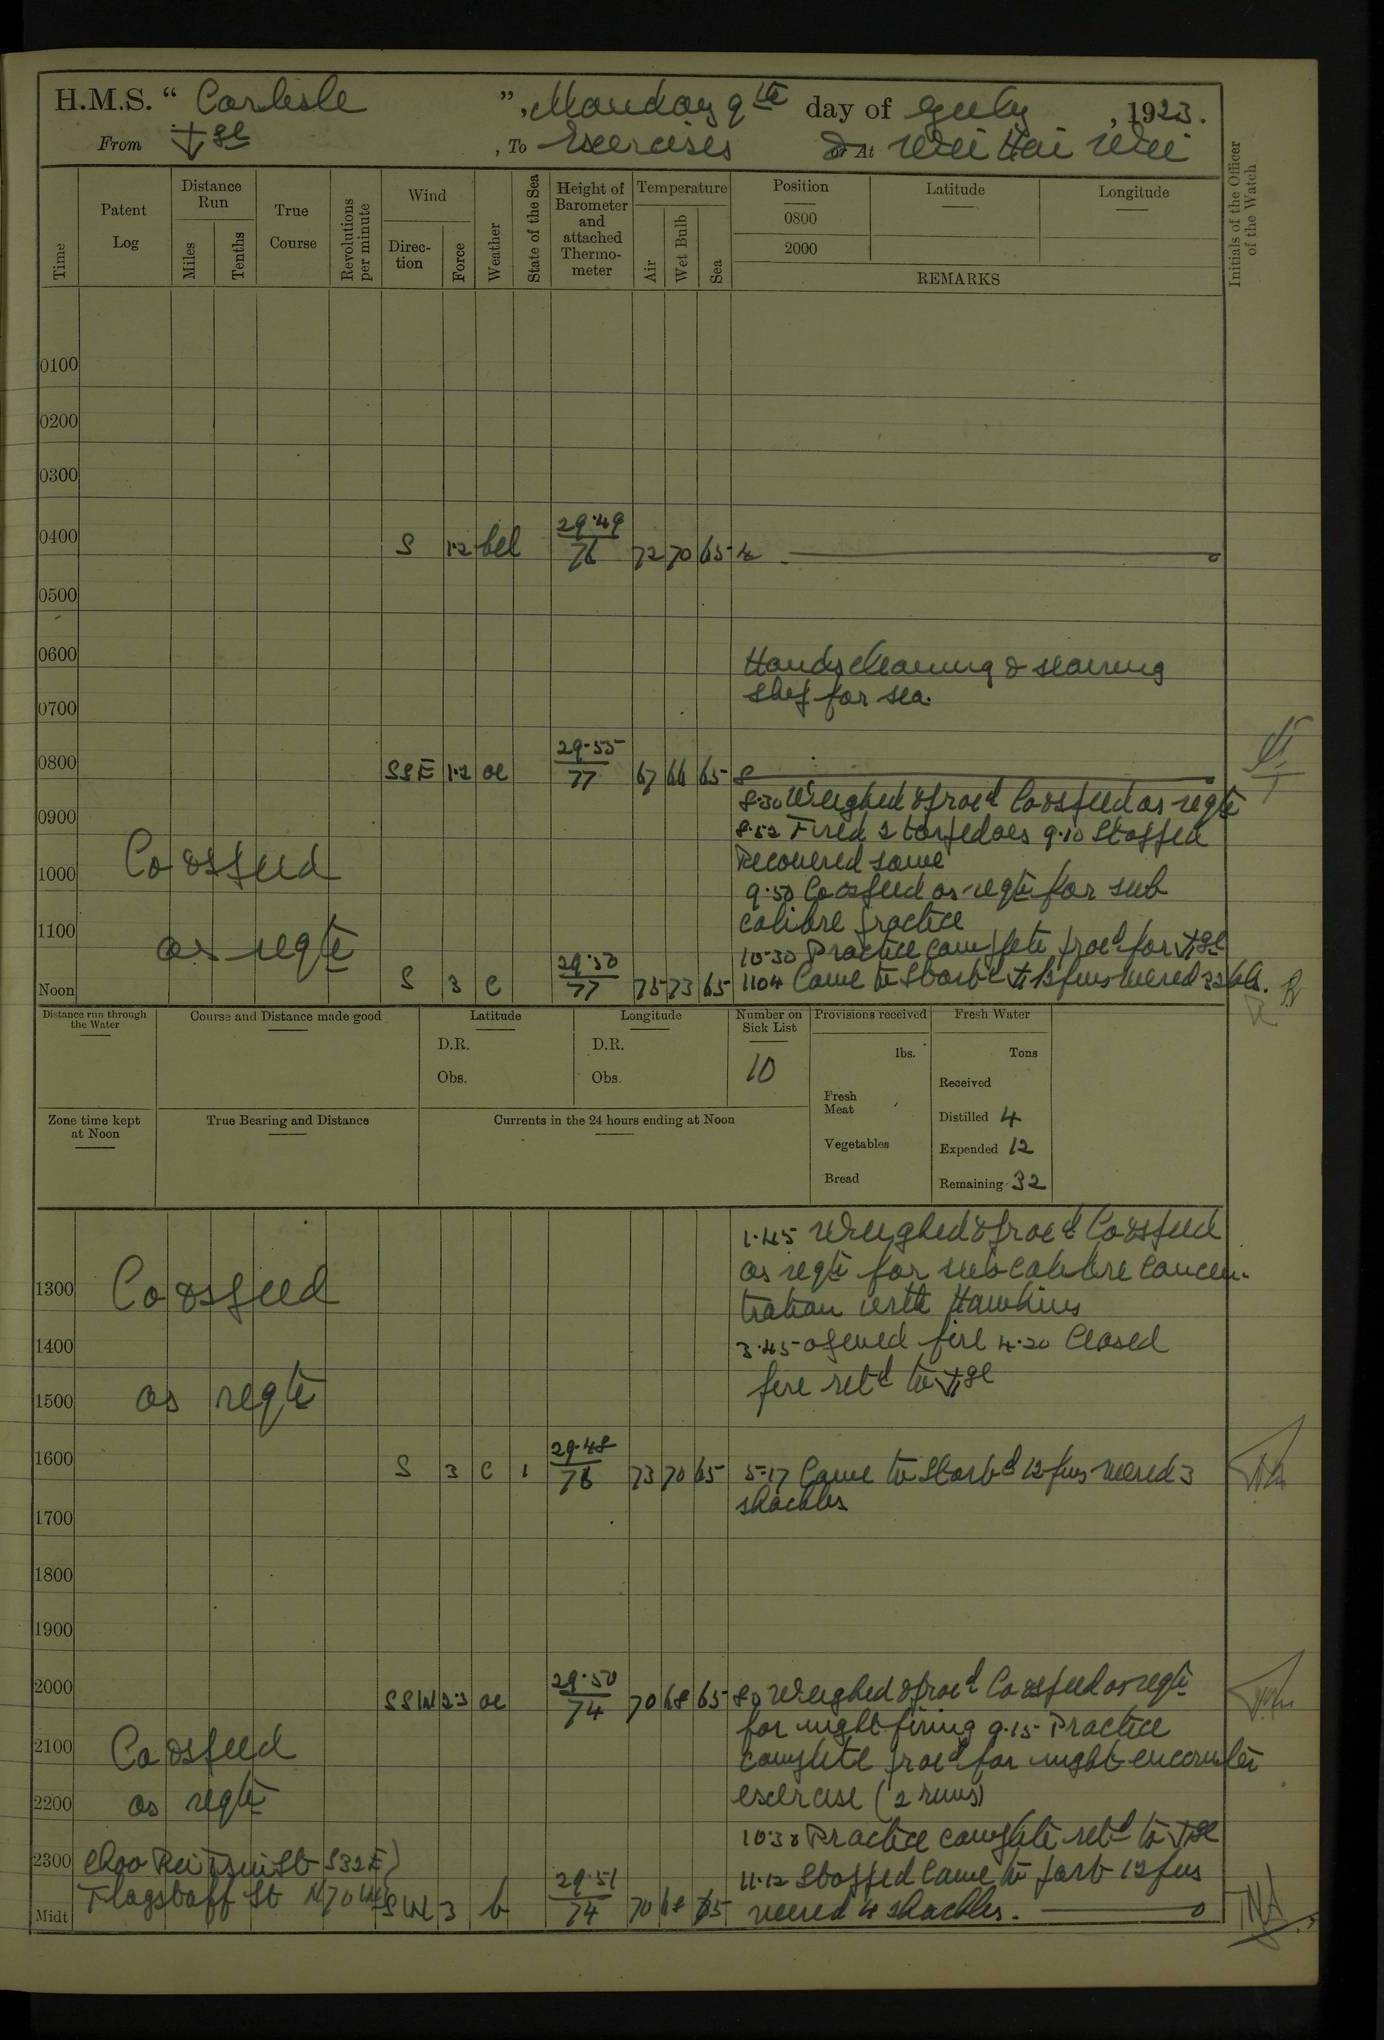 H.M.S. “ Carlisle ”, Monday 9th day of July, 1923.
From ⚓ge , To Exercises or At Wei Hai Wei
Time
Patent Log
Distance Run
Miles
Tenths
True Course
Revolutions per minute
Wind
Direc-tion
Force
Weather
State of the Sea
Height of Barometer and attached Thermo-meter
Temperature
Air
Wet Bulb
Sea
Position
0800
2000
Latitude
Longitude
REMARKS
Initials of the Officer of the Watch
0100
0200
0300
0400 S 1·2 bcl 29·49/76 72 70 65 4
0500
0600 Hands cleaning & securing
ship for sea.
0700
0800 SSE 1·2 oc 29·55/77 67 66 65 8
8·30 Weighed & proc'd Co & speed as reqte
0900 8·52 Fired 2 torpedoes 9·10 Stopped
Co & speed
1000 Recovered same
9·50 Co & speed as reqte for sub
calibre practice
1100 as reqte
10·30 Practice complete proc'd for ⚓ge
Noon S 3 c 29·50/77 75 73 65 1104 Came to Starbd ⚓ 12 fms veered 3 shls.
Distance run through the Water
Course and Distance made good
Latitude
D.R.
Obs.
Longitude
D.R.
Obs.
Number on Sick List
10
Provisions received
lbs.
Fresh Meat
Vegetables
Bread
Fresh Water
Tons
Received
Distilled 4
Expended 12
Remaining 32
Zone time kept at Noon
True Bearing and Distance
Currents in the 24 hours ending at Noon
1·45 Weighed & proc'd Co & speed
1300 Co & speed as reqte for sub calibre concen-
tration with Hawkins
1400 3·45 opened fire 4·20 Closed
1500 as reqte fire retd to ⚓ge
1600 S 3 c 1 29·48/76 73 70 65 5·17 Came to Starbd 12 fms veered 3
shackles
1700
1800
1900
2000 SSW 2·3 oc 29·50/74 70 68 65 8·0 Weighed & proc'd Co & speed as reqte
for night firing 9·15 Practice
2100 Co & speed complete proc'd for night encounter
2200 as reqte exercise (2 runs)
10·30 Practice complete retd to ⚓ge
2300 S32E
11·12 Stopped Came to port 12 fms
Flagstaff St N70W
Midt SW 3 b 29·51/74 70 68 65 veered 4 shackles.